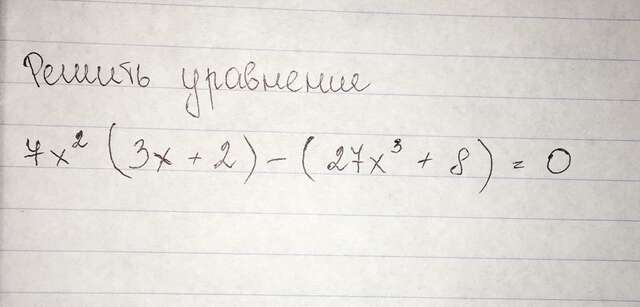 Решить уравнение
7x² (3x + 2) - (27x³ + 8) = 0